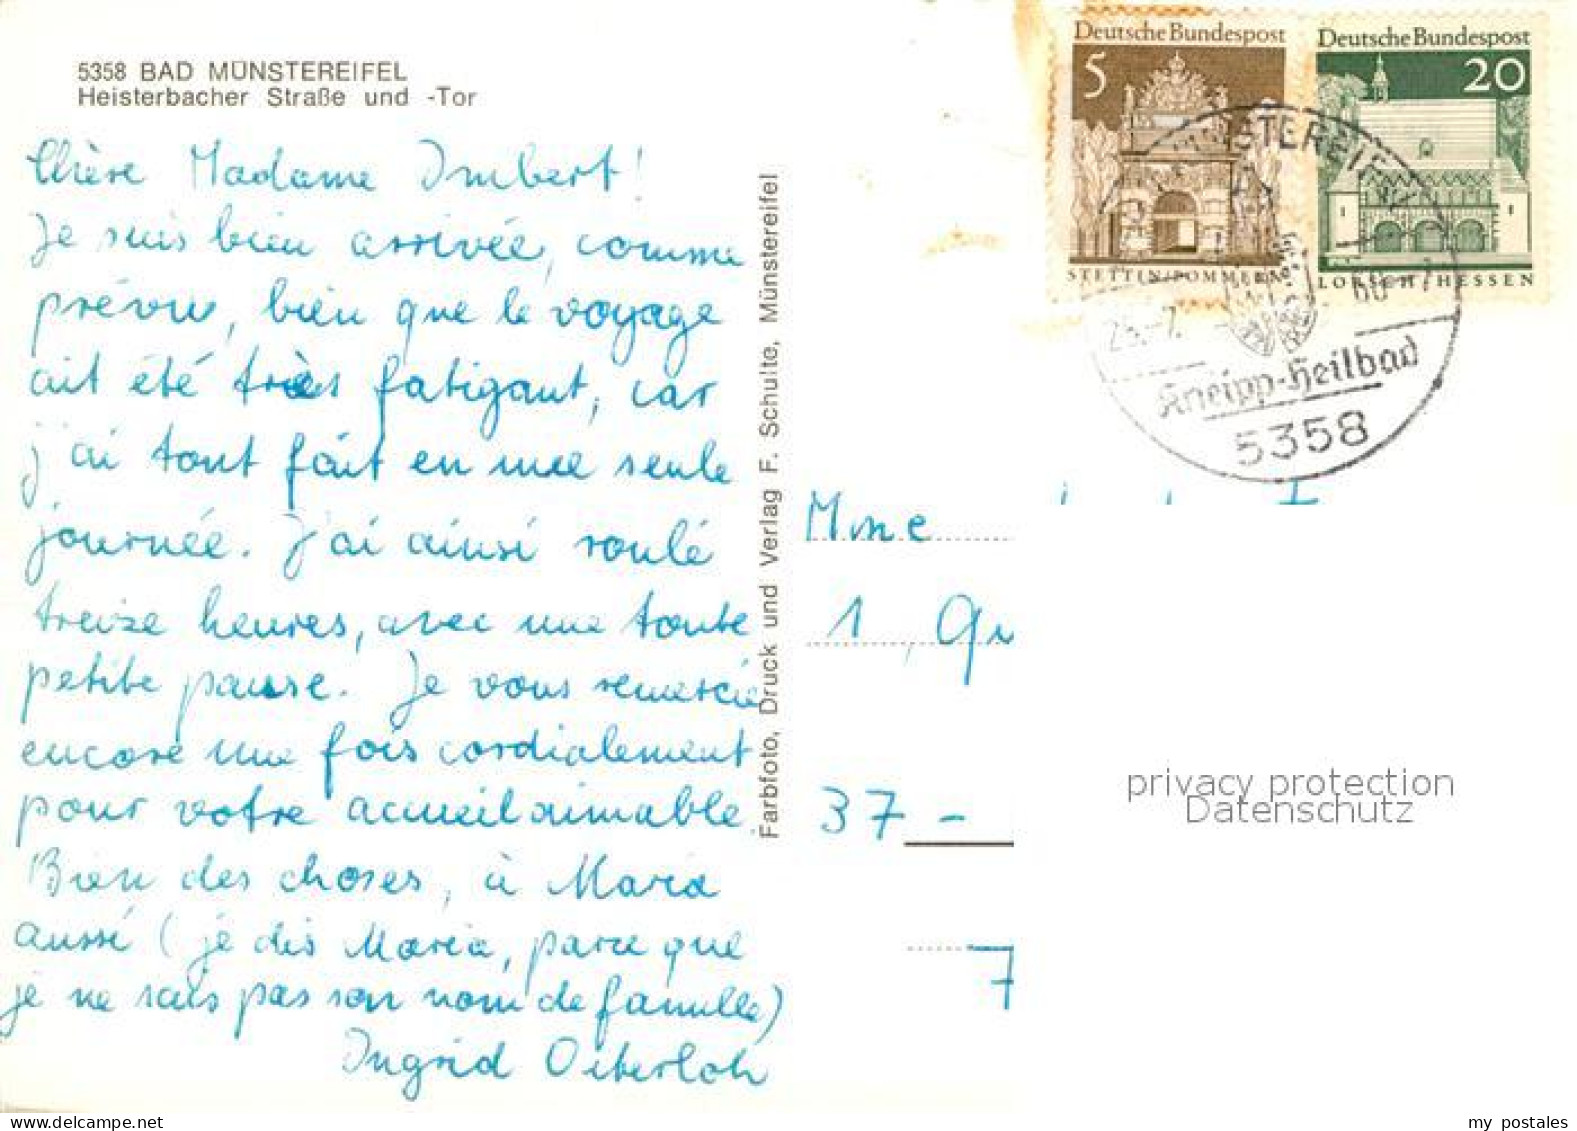 5358 BAD MÜNSTEREIFEL
Heisterbacher Straße und -Tor
Chère Madame Imbert!
Je suis bien arrivée, comme
prévu, bien que le voyage
ait été très fatigant, car
j'ai tout fait en une seule
journée. J'ai ainsi roulé
treize heures, avec une toute
petite pause. Je vous remercie
encore une fois cordialement
pour votre accueil aimable.
Bien des choses, à Maria
aussi (je dis Maria, parce que
je ne sais pas son nom de famille)
Ingrid Oiterloh
Farbfoto, Druck und Verlag F. Schulte, Münstereifel
Deutsche Bundespost
5
STETTIN/POMMERN
Deutsche Bundespost
20
LORSCH/HESSEN
MÜNSTEREIFEL
Kneipp-Heilbad
5358
Mme
1, Qu
37-
7
privacy protection
Datenschutz
my postales